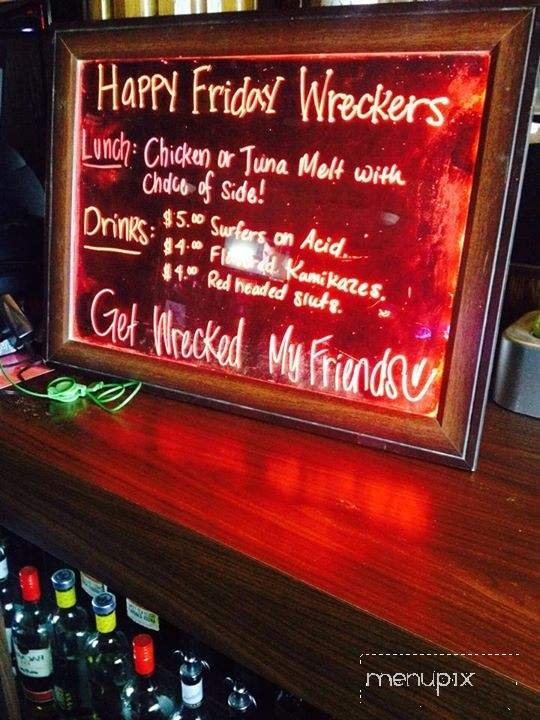 Happy Friday Wreckers
Lunch: Chicken or Tuna Melt with
Choice of Side!
Drinks: $5.00 Surfers on Acid.
$4.00 Flavored Kamikazes.
$4.00 Red headed sluts.
Get Wrecked My Friends
menupix